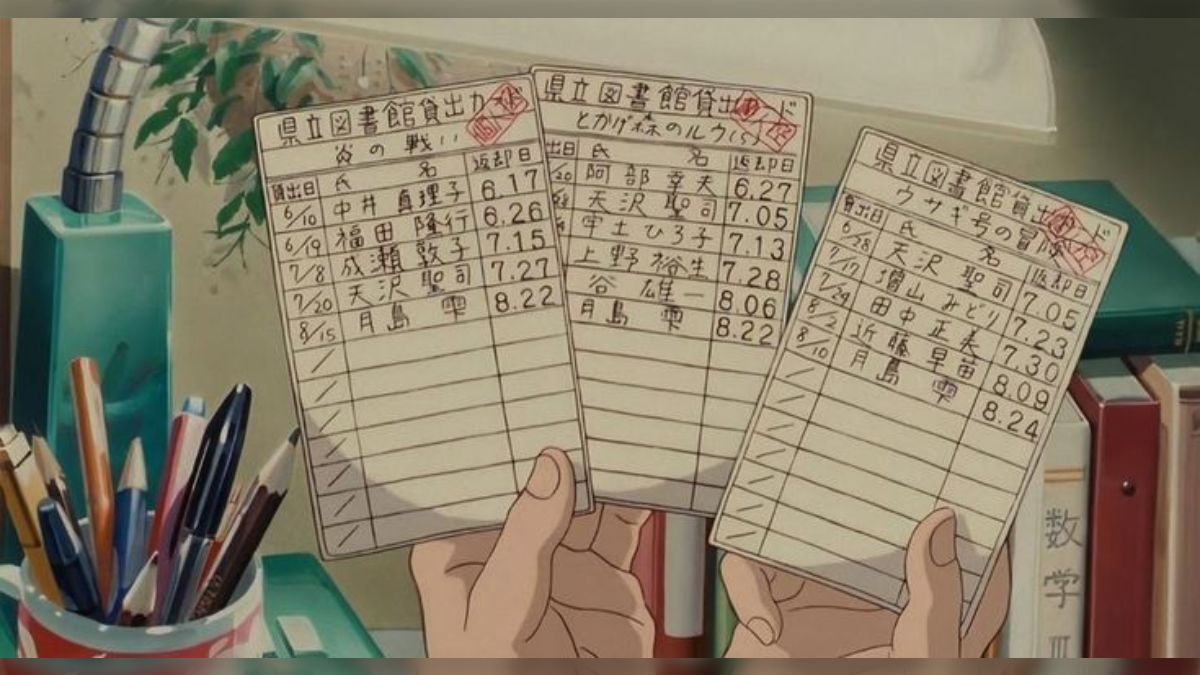 県立図書館貸出カード
炎の戦い
貸出日 氏 名 返却日
6/10 中井 真理子 6.17
6/19 福田 隆行 6.26
7/8 成瀬 敦子 7.15
7/20 天沢 聖司 7.27
8/15 月島 雫 8.22
県立図書館貸出カード
とかげ森のルウ
出日 氏 名 返却日
/20 阿部 幸夫 6.27
天沢 聖司 7.05
ひろ子 7.13
上野 裕生 7.28
谷 雄一 8.06
月島 雫 8.22
県立図書館貸出カード
ウサギ号の冒険
貸出日 氏 名 返却日
6/28 天沢 聖司 7.05
7/17 増山 みどり 7.23
7/24 田中 正美 7.30
8/2 近藤 早苗 8.09
8/10 月島 雫 8.24
数学Ⅲ